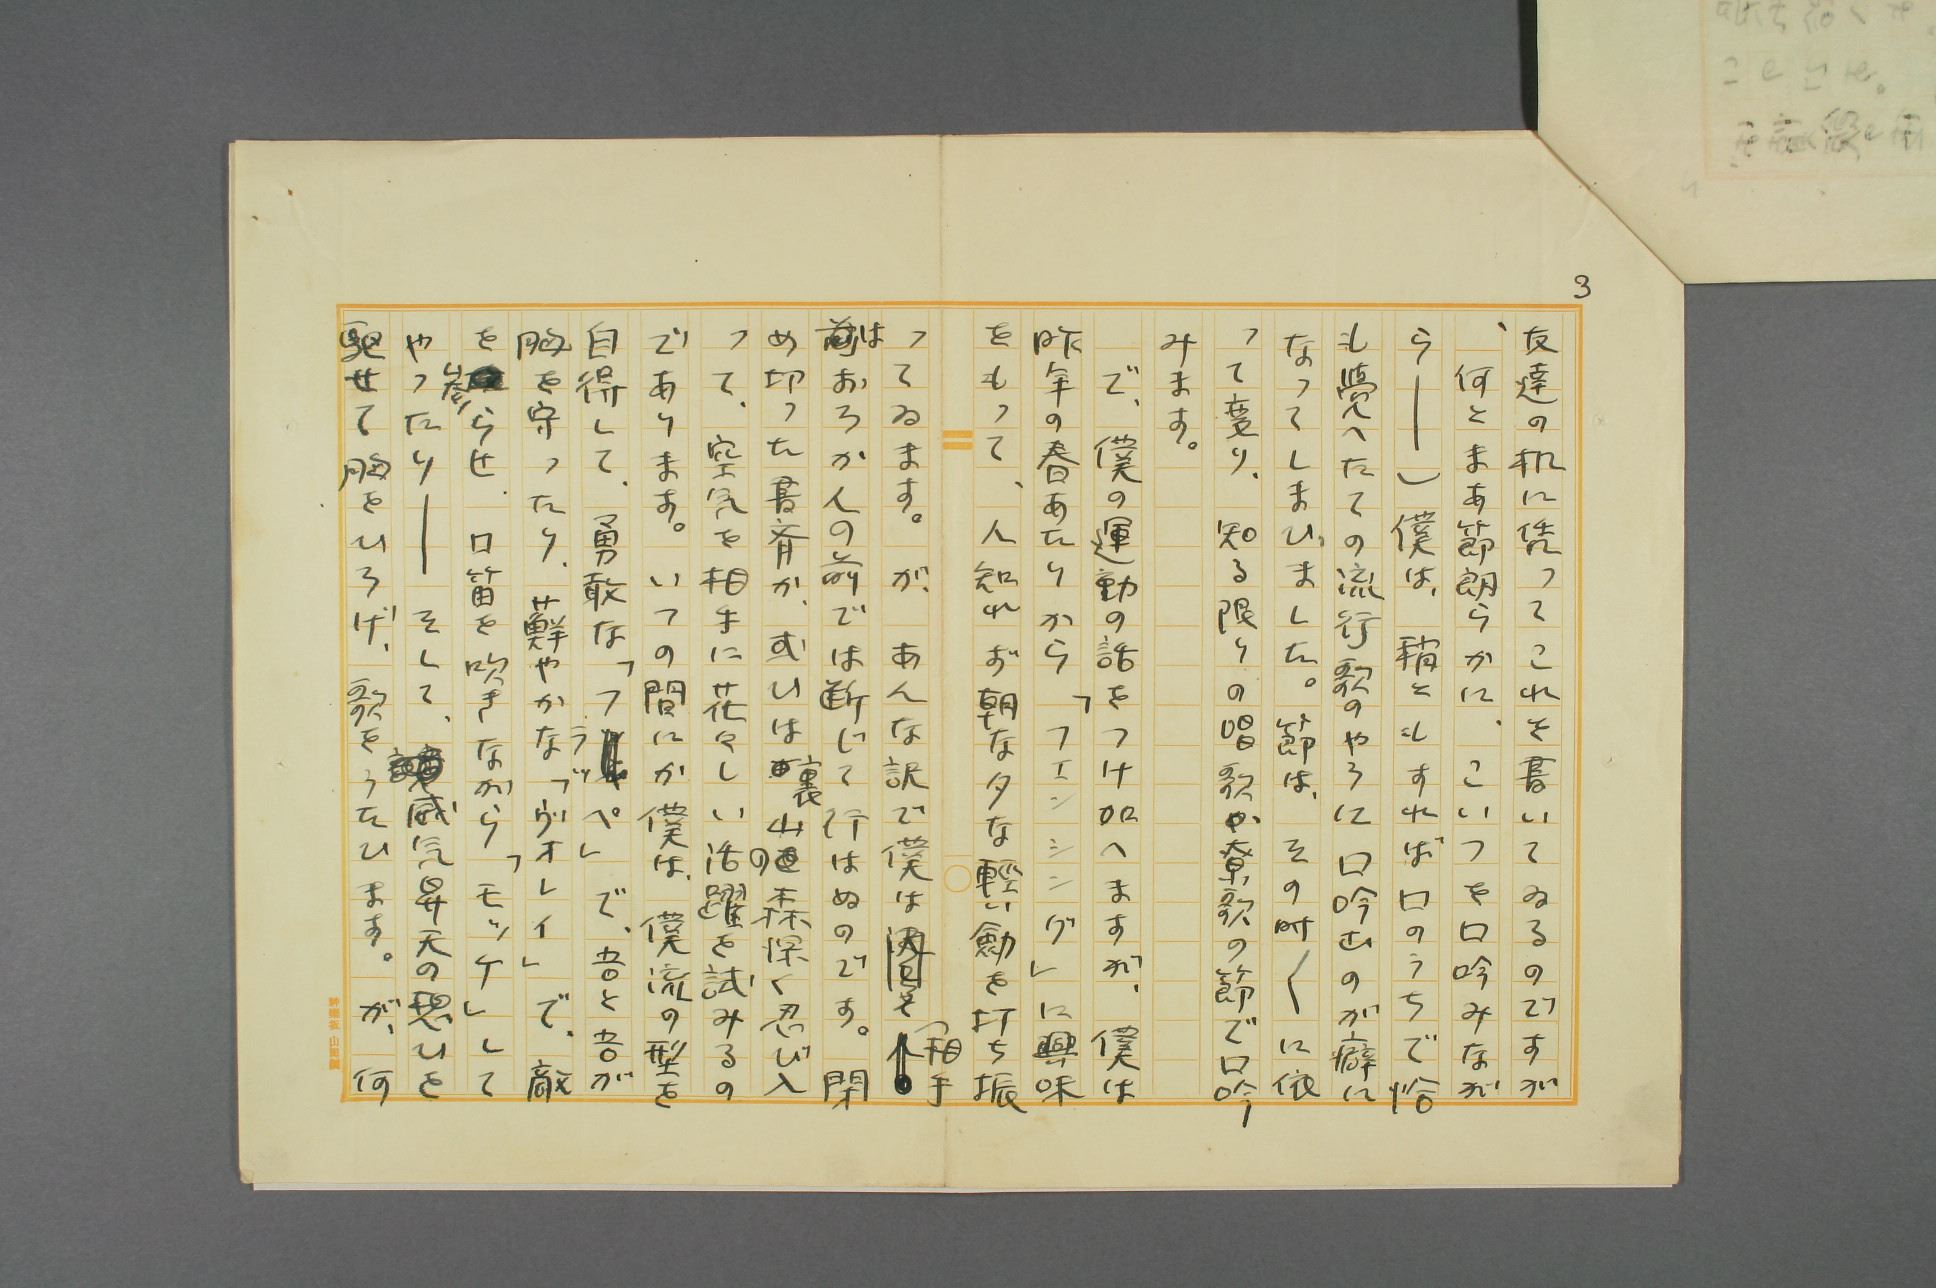 3
友達の机に凭つてこれを書いてゐるのですが
、何とまあ節朗らかに、こいつを口吟みなが
ら――）僕は、稍ともすれば口のうちで恰
も覺へたての流行歌のやうに口吟むのが癖に
なつてしまひました。節は、その時〱に依
つて変り、知る限りの唱歌や寮歌の節で口吟
みます。
で、僕の運動の話をつけ加へますが、僕は
昨年の春あたりから「フエンシシング」に興味
をもつて、人知れず朝な夕な軽い劔を打ち振
つてゐます。が、あんな訳で僕は（相手
はおろか人の前では断じて行はぬのです。閉
め切つた書斎か、或ひは裏山の森深く忍び入
つて、空気を相手に花々しい活躍を試みるの
であります。いつの間にか僕は、僕流の型を
自得して、勇敢な「フラッペ」で、吾と吾が
胸を守つたり、鮮やかな「ヴオレイ」で、敵
をらせ、口笛を吹きながら「モツケ」して
やつたり――そして、意気昇天の想ひを
馳せて胸をひろげ、歌をうたひます。が、何
神樂坂 山田製